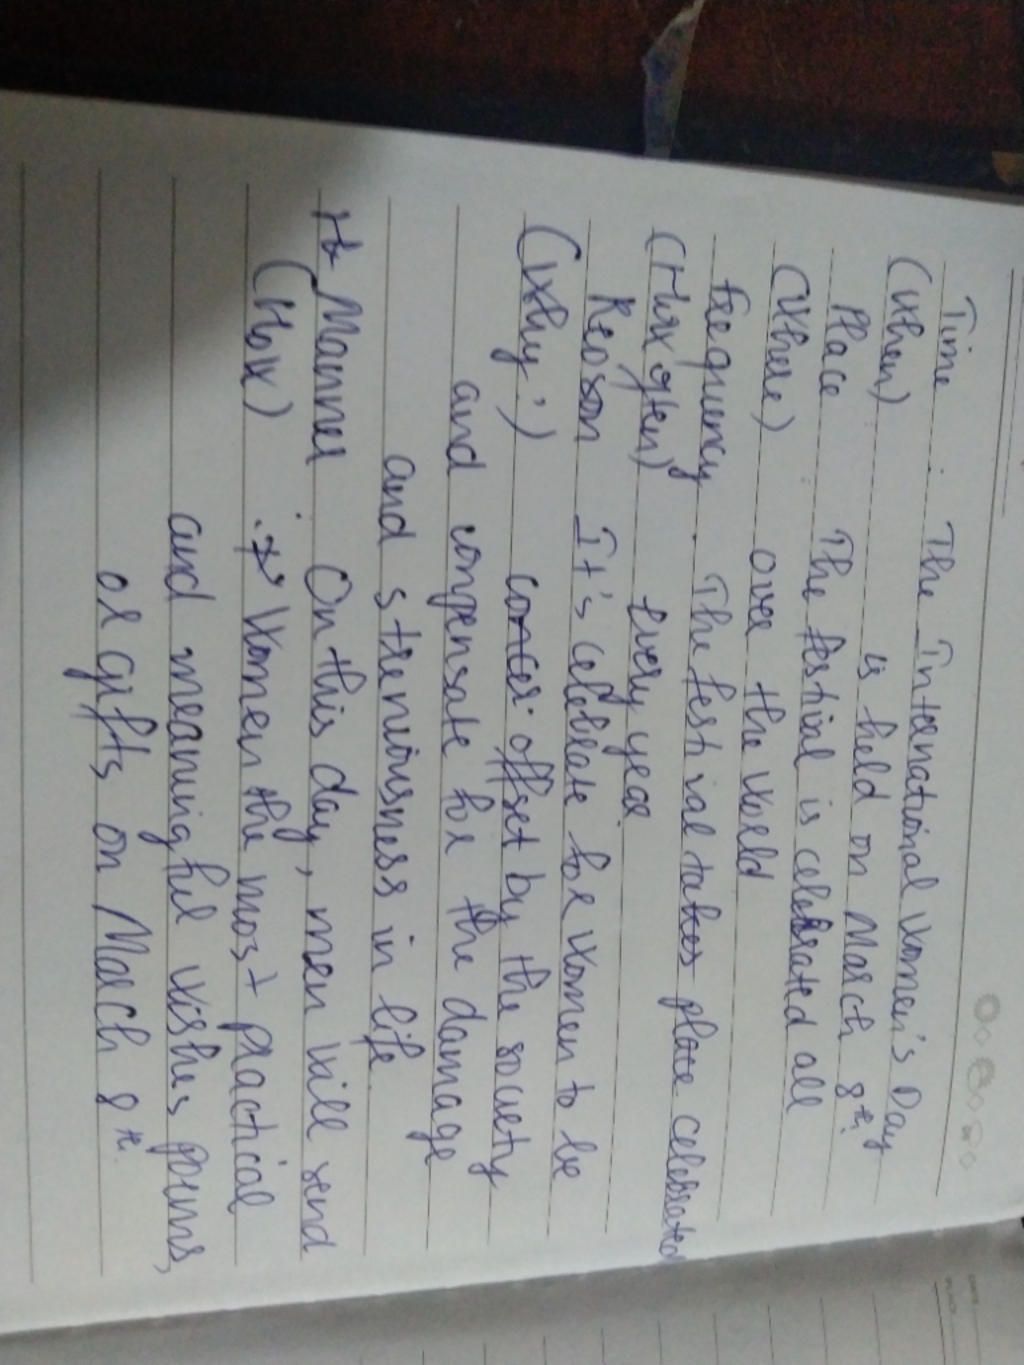 Time : The International Women's Day
(When) is held on March 8th.
Place : The festial is celebrated all
(Where) over the world
Frequency . The festival takes place celebrated
(How often) every year
Reason It's celebrate for women to be
(Why?) offset by the society
and compensate for the damage
and strenuousness in life.
Manner : On this day, men will send
(How) Women the most practical
and meaningful wishes, poems,
or gifts on March 8th.